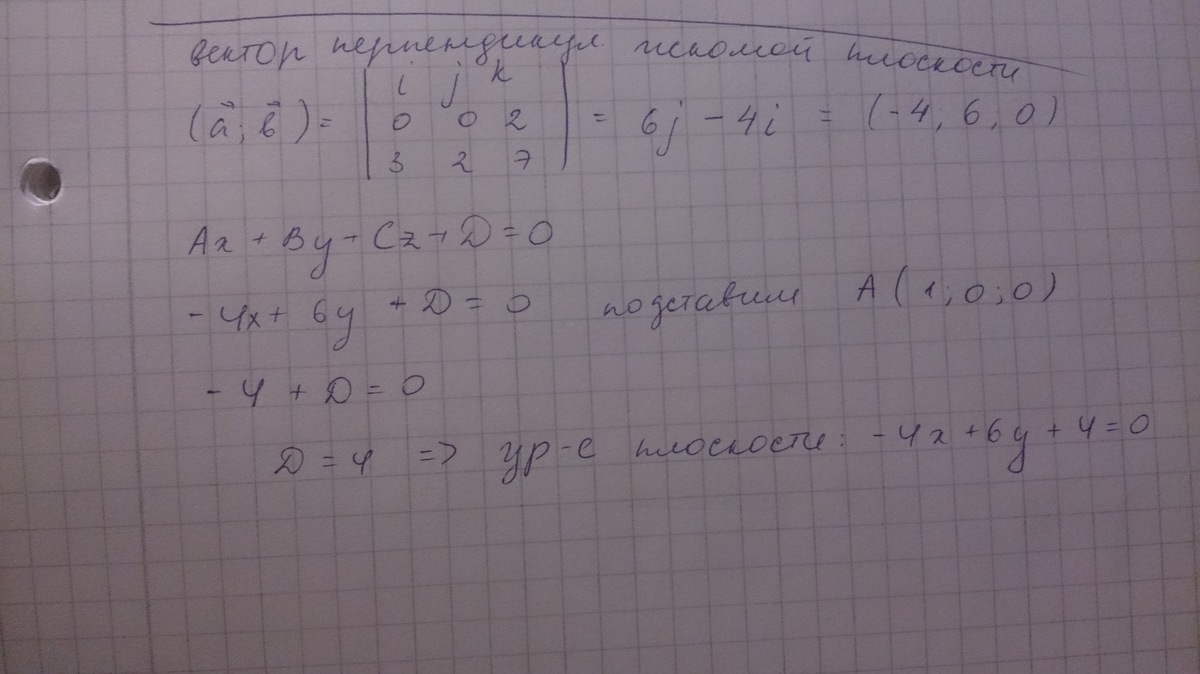 вектор перпендикул. искомой плоскости
(a⃗; b⃗) = | i j k |
| 0 0 2 | = 6j - 4i = (-4, 6, 0)
| 3 2 7 |
Ax + By + Cz + D = 0
- 4x + 6y + D = 0 подставим A (1; 0; 0)
- 4 + D = 0
D = 4 => ур-е плоскости: -4x + 6y + 4 = 0